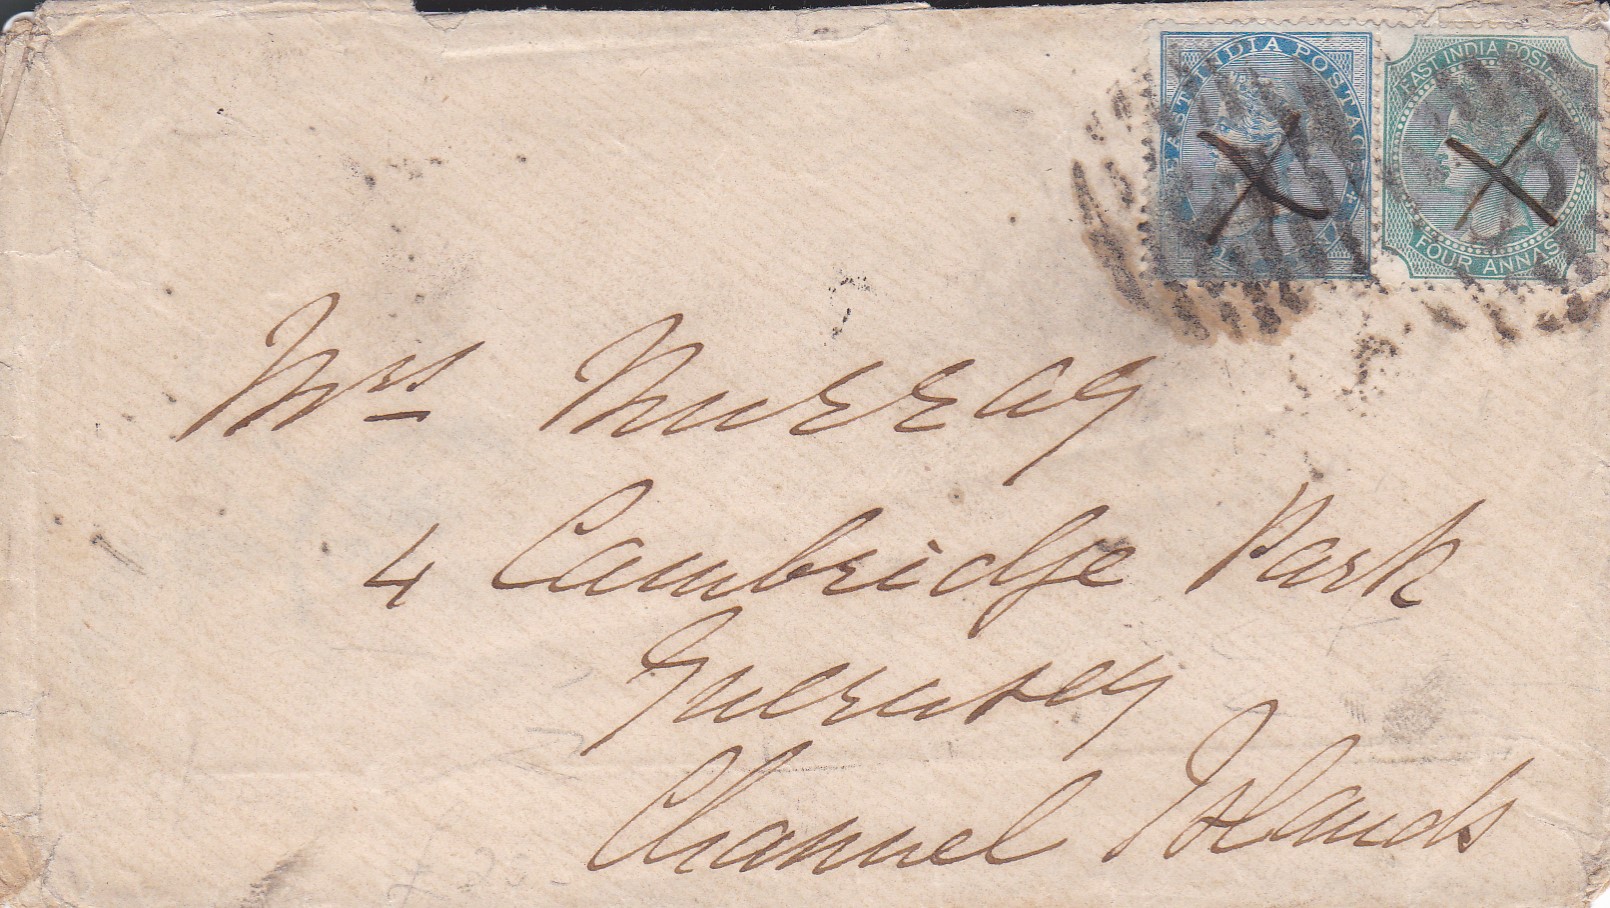 EAST INDIA POSTAGE
EAST INDIA POSTAGE
FOUR ANNAS
Mrs Murray
4 Cambridge Park
Guernsey
Channel Islands